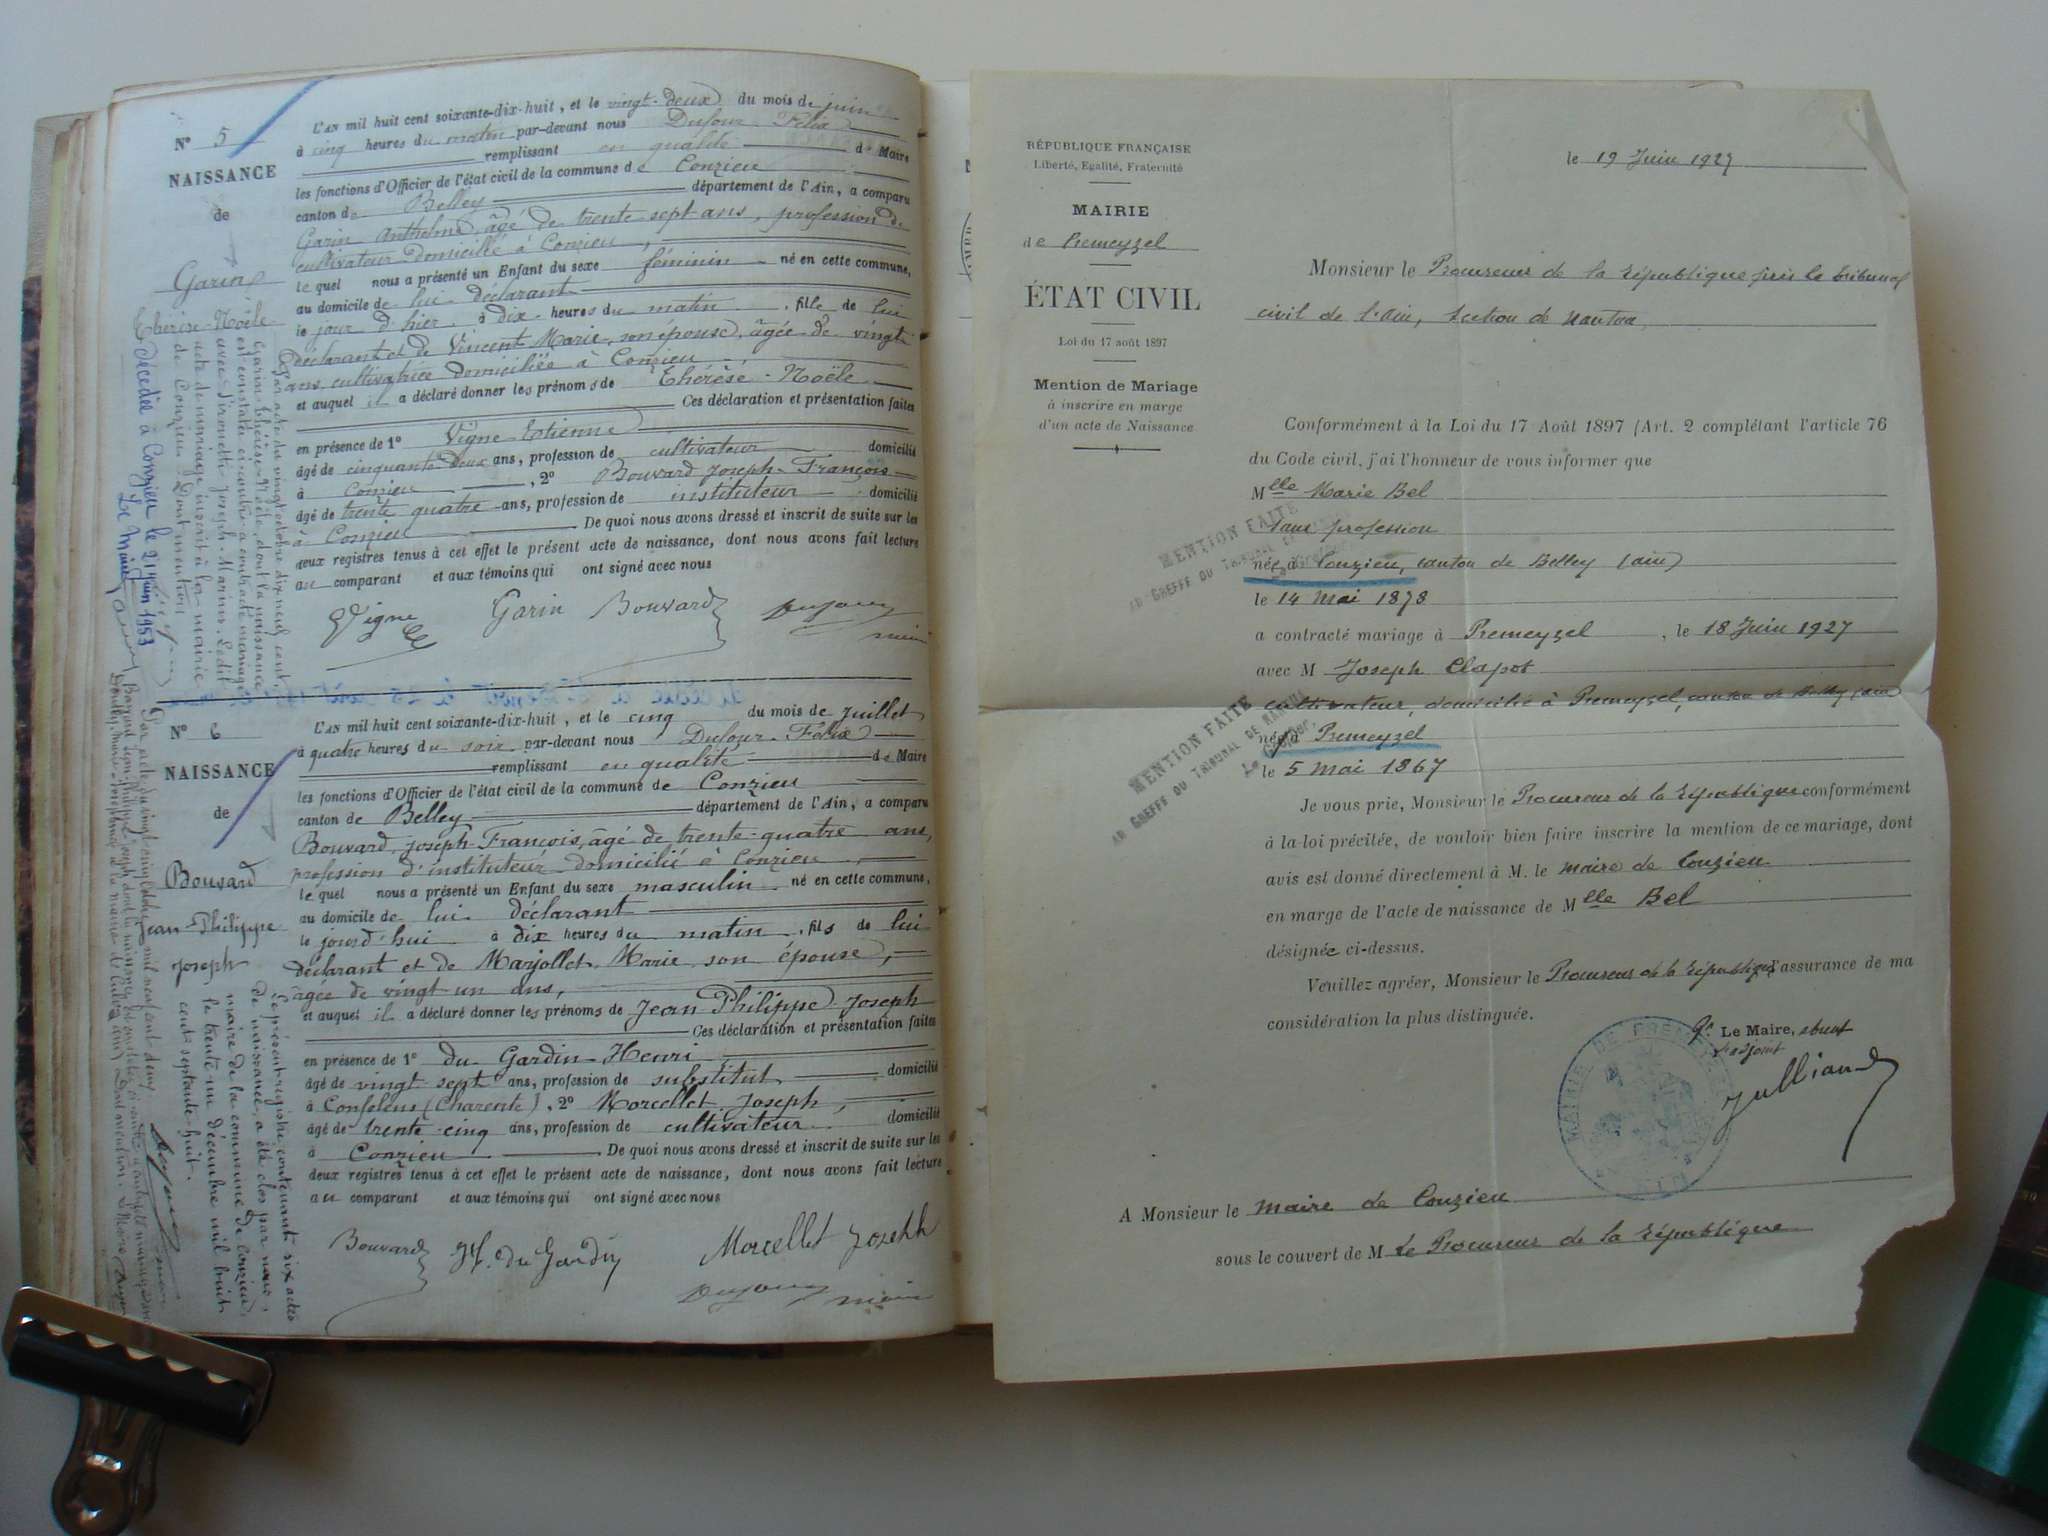 N° 5
NAISSANCE
de
Garin
Thérèse-Noële
L'AN mil huit cent soixante-dix-huit, et le vingt-deux du mois de juin
à cinq heures du matin par-devant nous Dufour Félix
remplissant en qualité de Maire
les fonctions d'Officier de l'état civil de la commune de Conzieu
canton de Belley département de l'Ain, a comparu
Garin Anthelme, âgé de trente sept ans, profession de
cultivateur domicillé à Conzieu,
le quel nous a présenté un Enfant du sexe féminin né en cette commune,
au domicile de lui déclarant
le jour d'hier à dix heures du matin, fille de lui
déclarant et de Vincent Marie, son épouse, âgée de vingt
ans, cultivatrice domiciliée à Conzieu
et auquel il a déclaré donner les prénoms de Thérèse-Noële
Ces déclaration et présentation faites
en présence de 1° Vigne Etienne
âgé de cinquante deux ans, profession de cultivateur domicilié
à Conzieu, 2° Bouvard Joseph-François
âgé de trente quatre ans, profession de instituteur domicilié
à Conzieu De quoi nous avons dressé et inscrit de suite sur les
deux registres tenus à cet effet le présent acte de naissance, dont nous avons fait lecture
au comparant et aux témoins qui ont signé avec nous
Vigne Garin Bouvard Dufour
maire
Par acte du vingt octobre dix neuf cent
Garin Thérèse-Noële, dont la naissance
est constatée ci-contre a contracté mariage
avec Pironetti Joseph-Marius. Ledit
acte de mariage inscrit à la mairie
de Conzieu. Dont mention
Décédée à Conzieu le 21 juin 1953
Le Maire
N° 6
NAISSANCE
de
Bouvard
Jean-Philippe
Joseph
L'AN mil huit cent soixante-dix-huit, et le cinq du mois de juillet
à quatre heures du soir par-devant nous Dufour Félix
remplissant en qualité de Maire
les fonctions d'Officier de l'état civil de la commune de Conzieu
canton de Belley département de l'Ain, a comparu
Bouvard Joseph-François, âgé de trente-quatre ans,
profession d'instituteur domicilié à Conzieu,
le quel nous a présenté un Enfant du sexe masculin né en cette commune,
au domicile de lui déclarant
le jourd'hui à dix heures du matin, fils de lui
déclarant et de Marjollet Marie son épouse,
âgée de vingt un ans,
et auquel il a déclaré donner les prénoms de Jean Philippe Joseph
Ces déclaration et présentation faites
en présence de 1° du Gardin Henri
âgé de vingt sept ans, profession de substitut domicilié
à Confolens (Charente), 2° Morcellet Joseph,
âgé de trente cinq ans, profession de cultivateur domicilié
à Conzieu De quoi nous avons dressé et inscrit de suite sur les
deux registres tenus à cet effet le présent acte de naissance, dont nous avons fait lecture
au comparant et aux témoins qui ont signé avec nous
Bouvard H. du Gardin Morcellet Joseph
Dufour maire
Le présent registre contenant six actes
de naissance, a été clos par nous,
maire de la commune de Conzieu,
le trente-un décembre mil huit
cent septante-huit.
Dufour maire
RÉPUBLIQUE FRANÇAISE
Liberté, Egalité, Fraternité
MAIRIE
de Premeyzel
ÉTAT CIVIL
Loi du 17 août 1897
Mention de Mariage
à inscrire en marge
d'un acte de Naissance
le 19 Juin 1927
Monsieur le Procureur de la république près le tribunal
civil de l'Ain, section de Nantua
Conformément à la Loi du 17 Août 1897 (Art. 2 complétant l'article 76
du Code civil, j'ai l'honneur de vous informer que
Mlle Marie Bel
sans profession
née à Conzieu, canton de Belley (ain)
le 14 mai 1878
a contracté mariage à Premeyzel, le 18 Juin 1927
avec M Joseph Clapot
cultivateur, domicilié à Premeyzel, canton de Belley (ain)
né à Premeyzel
le 5 mai 1867
MENTION FAITE
AU GREFFE DU TRIBUNAL
MENTION FAITE
AU GREFFE DU TRIBUNAL DE NANTUA
Le Greffier,
Je vous prie, Monsieur le Procureur de la république conformément
à la loi précitée, de vouloir bien faire inscrire la mention de ce mariage, dont
avis est donné directement à M. le maire de Conzieu
en marge de l'acte de naissance de Mlle Bel
désignée ci-dessus.
Veuillez agréer, Monsieur le Procureur de la république l'assurance de ma
considération la plus distinguée.
Pr Le Maire, absent
l'adjoint
Julliand
MAIRIE DE PREMEYZEL
AIN
A Monsieur le maire de Conzieu
sous le couvert de M Le Procureur de la république